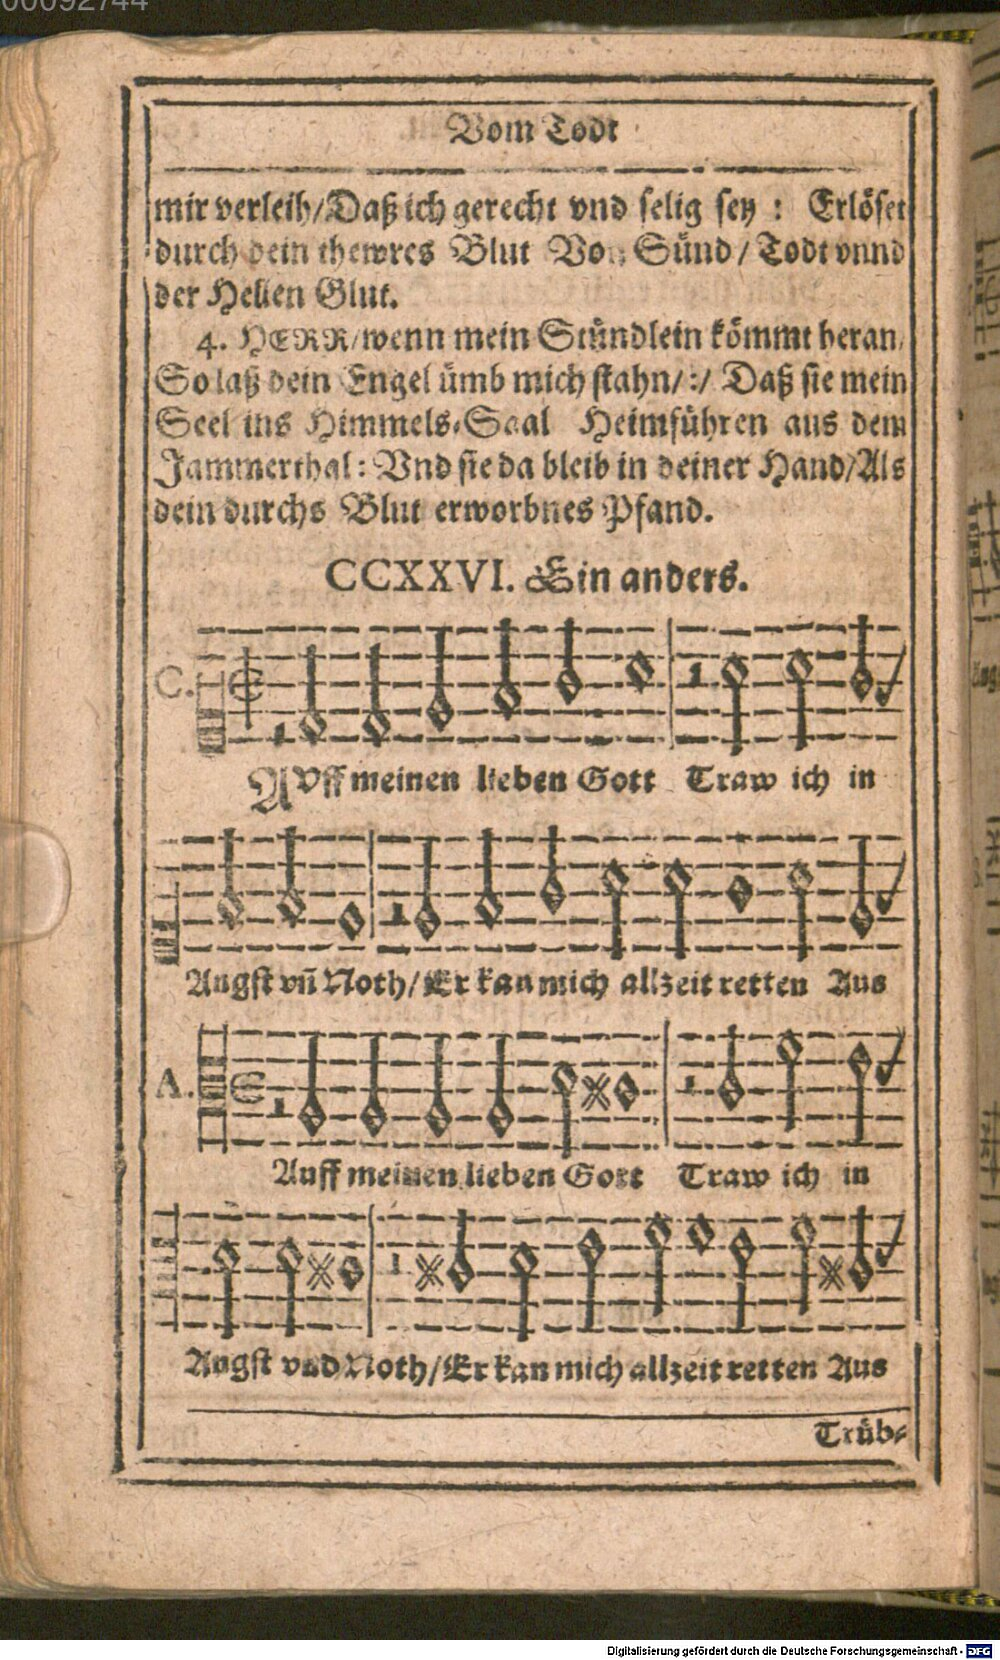 00092744
Vom Todt
mir verleih/Daß ich gerecht vnd selig sey : Erlöset
durch dein thewres Blut Von Sünd / Todt vnnd
der Hellen Glut.
4. HERR/wenn mein Stündlein kömmt heran/
So laß dein Engel ümb mich stahn/:/ Daß sie mein
Seel ins Himmels-Saal Heimführen aus dem
Jammerthal: Vnd sie da bleib in deiner Hand/Als
dein durchs Blut erworbnes Pfand.
CCXXVI. Ein anders.
C.
AVff meinen lieben Gott Traw ich in
Angst vñ Noth/Er kan mich allzeit retten Aus
A.
Auff meinen lieben Gott Traw ich in
Angst vnd Noth/Er kan mich allzeit retten Aus
Trüb-
Digitalisierung gefördert durch die Deutsche Forschungsgemeinschaft - DFG